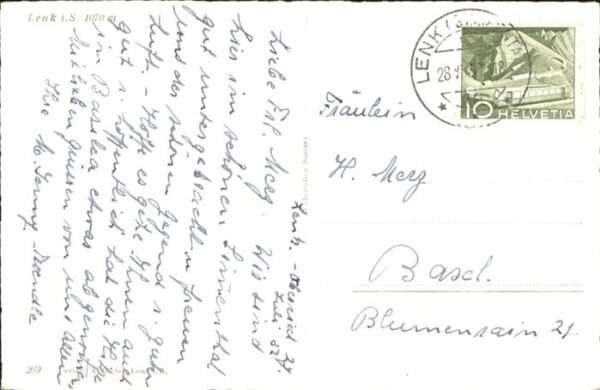 Lenk i. S. 1070 m
Lenk-Oberried 27.
Juli 52.
Liebe Frl. Merz! Wir sind
hier im schönen Simmenthal
gut untergebracht u. freuen
uns der schönen Gegend u. guten
Luft. - Hoffe es gehe Ihnen auch
gut u. hoffentlich hat die Hitze
in Basilea etwas abgenommen.
Mit lieben Grüssen von uns Allen
Ihre M. Jenny
LENK I. SIMMENTAL
28.
10
HELVETIA
Fräulein
H. Merz
Basel.
Blumenrain 27
269